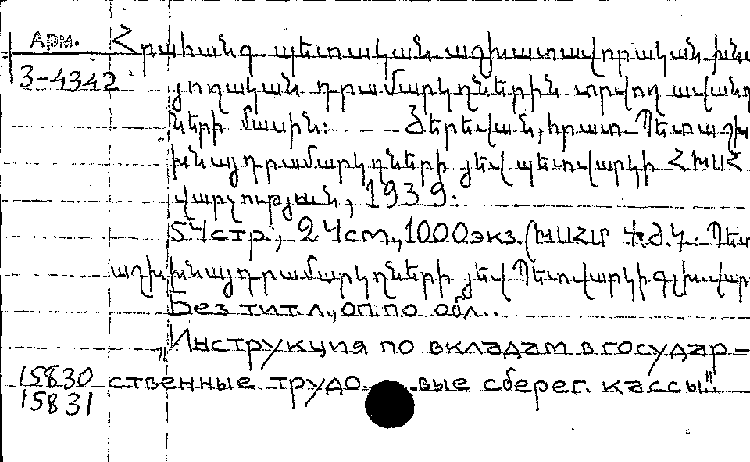 Арм.
3-4342
Հրահանգ պետական աշխատավորական խնա
յողական դրամարկղներին տրվող ավանդ
ների մասին: Յերեվան, հրատ. Պետաշխ
խնայդրամարկղների յեվ պետվարկի ՀԽՍՀ
վարչության, 1939.
54стр., 24см., 1000экз. (ԽՍՀՄ Պետ
աշխխնայդրամարկղների յեվ Պետվարկի գլխվար
Без тит. л., оп. по обл..
„Инструкция по вкладам в государ-
ственные трудовые сберег. кассы".
15830
15831